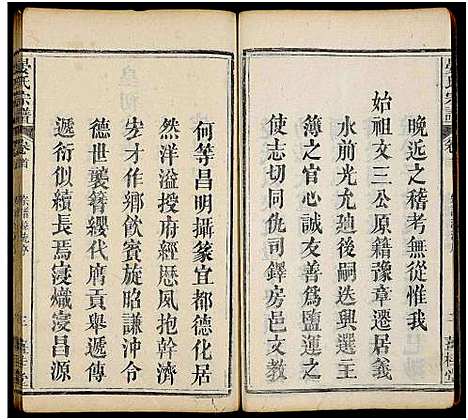 晏氏宗譜
卷首
晚近之稽考無從惟我
始祖文三公原籍豫章遷居義
水前光允廸後嗣迭興選主
簿之官心誠友善爲鹽運之
使志切同仇司鐸房邑文教
何等昌明攝篆宜都德化居
然洋溢授府經歷夙抱幹濟
宏才作鄉飲賓旋昭謙沖令
德世襲簪纓代膺貢舉遞傳
遞衍似續長焉寖熾寖昌源